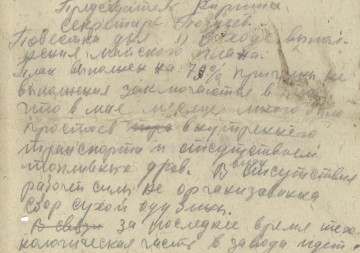 Председатель Карпина
Секретарь
Повестка дня О ходе выпол-
нения майского плана.
План выполнен на 73% Причины не
выполнения заключаются в том
что в мае месяце много было
простоев внутреннего
транспорта и отсутствием
топливных дров. В виду отсутствия
рабочей силы не организована
сбор сухой
В связи за последнее время тех-
нологическая часть в завода идет